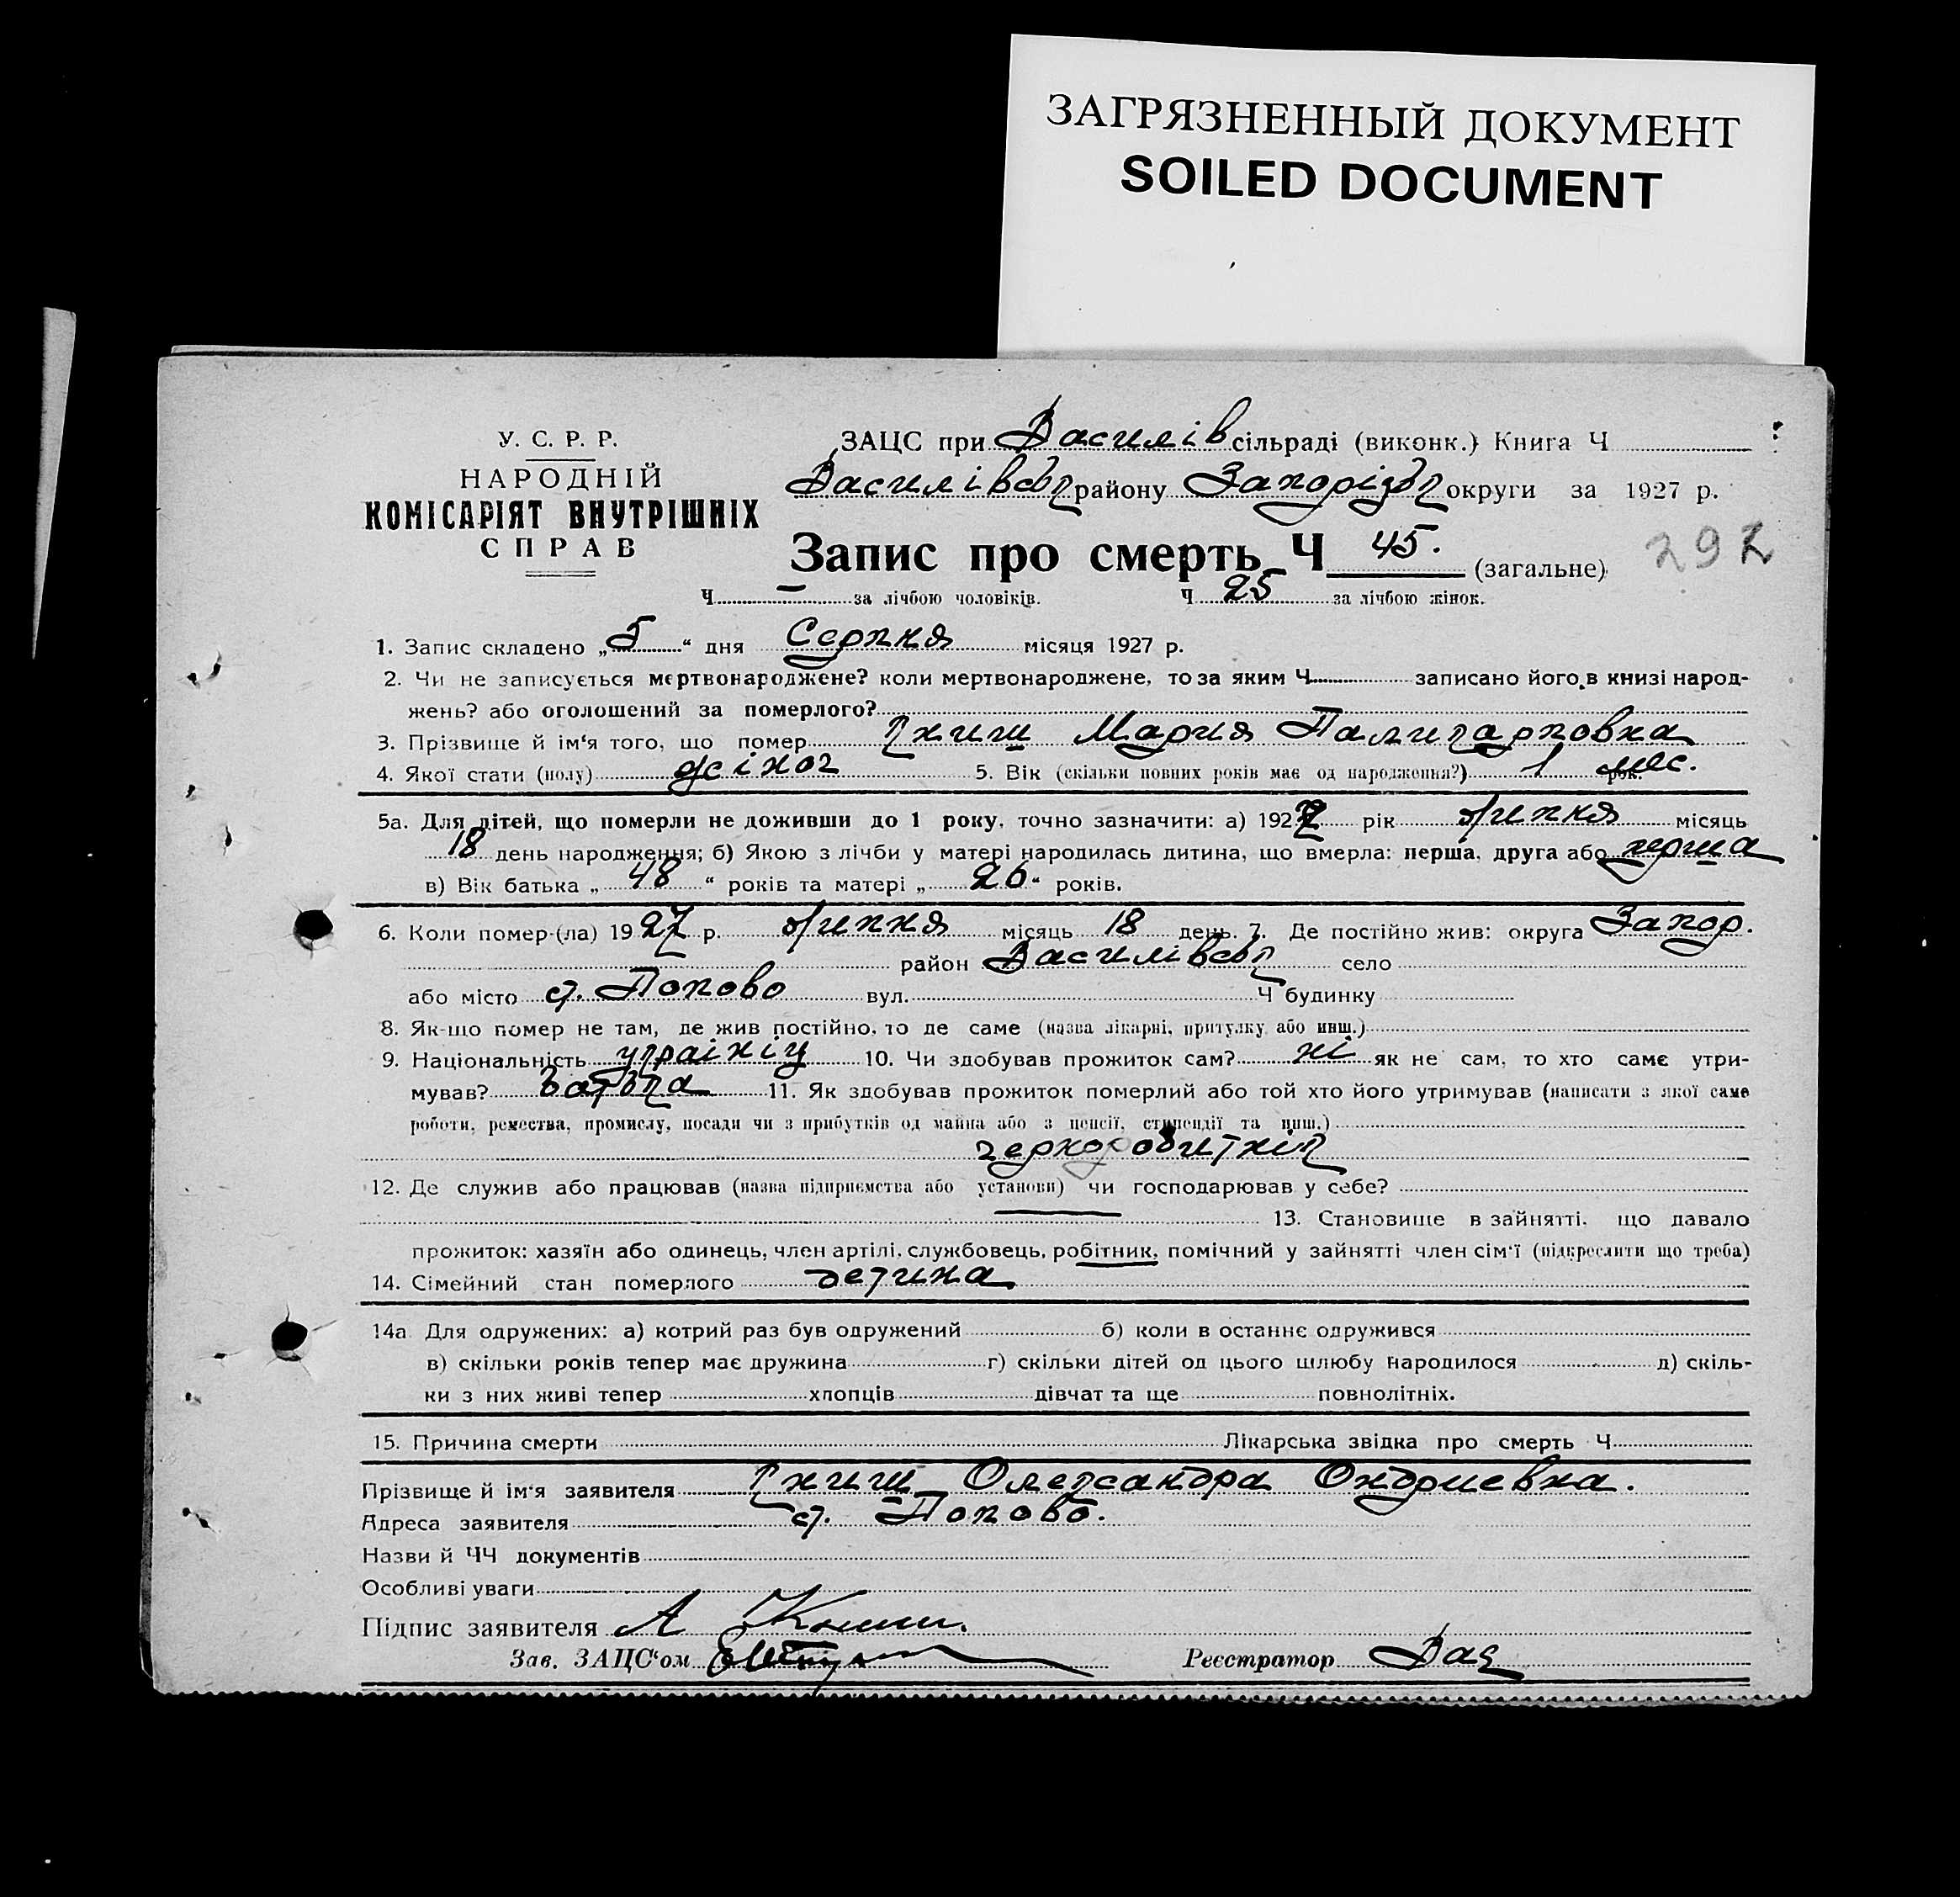 ЗАГРЯЗНЕННЫЙ ДОКУМЕНТ
SOILED DOCUMENT
У. С. Р. Р.
НАРОДНІЙ
КОМІСАРІЯТ ВНУТРІШНІХ
СПРАВ
ЗАЦС при Василів сільраді (виконк.) Книга Ч
Василівськ району Запорізьк округи за 1927 р.
Запис про смерть Ч 45. (загальне)
292
Ч — за лічбою чоловіків. Ч 25 за лічбою жінок.
1. Запис складено „5“ дня Серпня місяця 1927 р.
2. Чи не записується мертвонароджене? коли мертвонароджене, то за яким Ч записано його в книзі народ-
жень? або оголошений за померлого?
3. Прізвище й ім‘я того, що помер Книш Мария Паликарповна
4. Якої стати (полу) жіноч 5. Вік (скільки повних років має од народження?) 1 рок. мес.
5а. Для дітей, що померли не доживши до 1 року, точно зазначити: а) 1927 рік липня місяць
18 день народження; б) Якою з лічби у матері народилась дитина, що вмерла: перша, друга або перша
в) Вік батька „48“ років та матері „26“ років.
6. Коли помер-(ла) 1927 р. липня місяць 18 день. 7. Де постійно жив: округа Запор.
район Василівськ село
або місто ст. Попово вул. Ч будинку
8. Як-що помер не там, де жив постійно, то де саме (назва лікарні, притулку або инш.)
9. Національність україніц 10. Чи здобував прожиток сам? ні як не сам, то хто саме утри-
мував? батька 11. Як здобував прожиток померлий або той хто його утримував (написати з якої саме
роботи, ремества, промислу, посади чи з прибутків од майна або з пенсії, стипендії та инш.)
черноробитнік
12. Де служив або працював (назва підприємства або установи) чи господарював у себе?
— 13. Становище в зайнятті, що давало
прожиток: хазяїн або одинець, член артілі, службовець, робітник, помічний у зайнятті член сім‘ї (підкреслити що треба)
14. Сімейний стан померлого детина
14а Для одружених: а) котрий раз був одружений б) коли в останнє одружився
в) скільки років тепер має дружина г) скільки дітей од цього шлюбу народилося д) скіль-
ки з них живі тепер хлопців дівчат та ще повнолітніх.
15. Причина смерти Лікарська звідка про смерть Ч
Прізвище й ім‘я заявителя Книш Олександра Ондриевна.
Адреса заявителя ст. Попово.
Назви й ЧЧ документів
Особливі уваги
Підпис заявителя А Книш.
Зав. ЗАЦС‘ом
Реєстратор